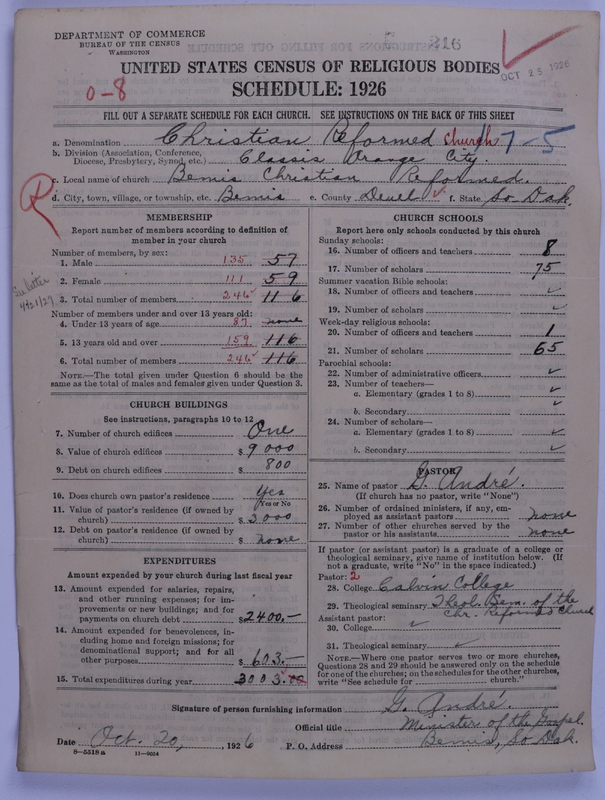 DEPARTMENT OF COMMERCE
BUREAU OF THE CENSUS
WASHINGTON
216
OCT 25 1926
UNITED STATES CENSUS OF RELIGIOUS BODIES
SCHEDULE: 1926
0-8
FILL OUT A SEPARATE SCHEDULE FOR EACH CHURCH. SEE INSTRUCTIONS ON THE BACK OF THIS SHEET
a. Denomination Christian Reformed Church 7-5
b. Division (Association, Conference, Diocese, Presbytery, Synod, etc.) Classis Orange City.
c. Local name of church Bemis Christian Reformed.
d. City, town, village, or township, etc. Bemis e. County Deuel f. State So Dak.
R
See letter
4-21/27
MEMBERSHIP
Report number of members according to definition of member in your church
Number of members, by sex:
1. Male 135 57
2. Female 111 59
3. Total number of members 246 116
Number of members under and over 13 years old:
4. Under 13 years of age 87 none
5. 13 years old and over 159 116
6. Total number of members 246 116
NOTE.—The total given under Question 6 should be the same as the total of males and females given under Question 3.
CHURCH BUILDINGS
See instructions, paragraphs 10 to 12
7. Number of church edifices One
8. Value of church edifices $ 9000
9. Debt on church edifices $ 800
10. Does church own pastor's residence Yes
Yes or No
11. Value of pastor's residence (if owned by church) $ 3000
12. Debt on pastor's residence (if owned by church) $ none
EXPENDITURES
Amount expended by your church during last fiscal year
13. Amount expended for salaries, repairs, and other running expenses; for improvements or new buildings; and for payments on church debt $ 2400.—
14. Amount expended for benevolences, including home and foreign missions; for denominational support; and for all other purposes $ 603.—
15. Total expenditures during year 3003.
CHURCH SCHOOLS
Report here only schools conducted by this church
Sunday schools:
16. Number of officers and teachers 8
17. Number of scholars 75
Summer vacation Bible schools:
18. Number of officers and teachers ✓
19. Number of scholars ✓
Week-day religious schools:
20. Number of officers and teachers 1
21. Number of scholars 65
Parochial schools:
22. Number of administrative officers ✓
23. Number of teachers—
a. Elementary (grades 1 to 8) ✓
b. Secondary ✓
24. Number of scholars—
a. Elementary (grades 1 to 8) ✓
b. Secondary ✓
PASTOR
25. Name of pastor G. André.
(If church has no pastor, write "None")
26. Number of ordained ministers, if any, employed as assistant pastors none
27. Number of other churches served by the pastor or his assistants none
If pastor (or assistant pastor) is a graduate of a college or theological seminary, give name of institution below. (If not a graduate, write "No" in the space indicated.)
Pastor: 2
28. College Calvin College
29. Theological seminary Theol. Sem. of the
Chr. Reformed Church
Assistant pastor:
30. College ✓
31. Theological seminary ✓
NOTE.—Where one pastor serves two or more churches, Questions 28 and 29 should be answered only on the schedule for one of the churches; on the schedules for the other churches, write "See schedule for church."
Signature of person furnishing information G. André.
Official title Minister of the Gospel.
Date Oct. 20, 1926 P. O. Address Bemis, So Dak.
8—5518a 11—9024